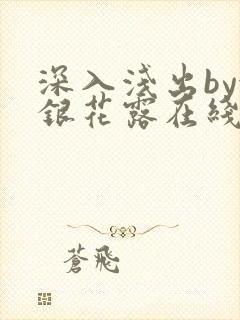 深入浅出by
銀花露在綫
蒼飛